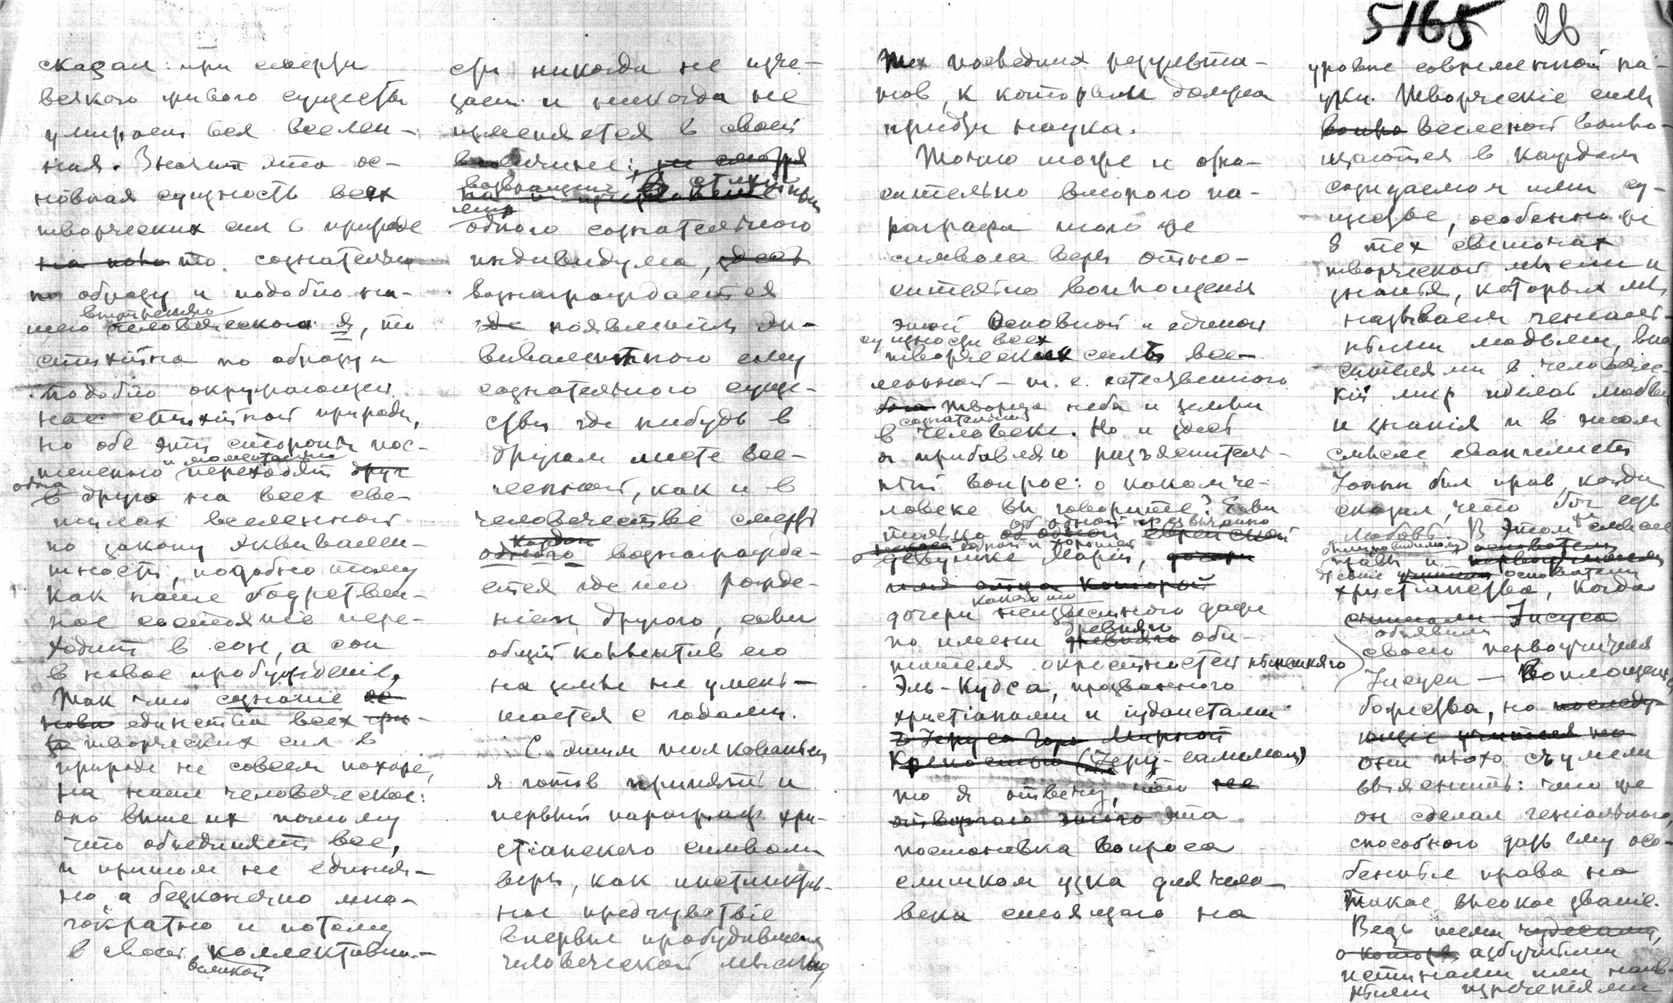 5165 26
сказал: при смерти
всякого живого существа
умирает вся вселен-
ная. Значит эта ос-
новная сущность всех
творческих сил в природе
то сознательна
по образу и подобию на-
шего внутреннего человеческого я, то
стихийна по образу и
подобию окружающей
нас стихийной природы,
но обе эти стороны пос-
тепенно и моментально переходят
одна в другую на всех све-
тилах вселенной
по закону эквивален-
тности, подобно тому
как наше бодрствен-
ное состояние пере-
ходит в сон, а сон
в новое пробуждение.
Так что сознание
единства всех
творческих сил в
природе не совсем похоже,
на наше человеческое:
оно выше их потому
что объединяет все,
и притом не единич-
но, а бесконечно мно-
гократно и потому
в своей великой коллективно-
сти никогда не исче-
зает и никогда не
изменяется в своей
величине;
одного сознательного
индивидуума,
вознаграждается
появлением эк-
вивалентного ему
сознательного суще-
ства где нибудь в
другом месте все-
ленной, как и в
человечестве смерть
одного вознагражда-
ется где либо рожде-
нием другого, если
общий контингент его
на земле не умень-
шается с годами.
С этим толкованьем
я готов принять и
первый параграф хри-
стіанского символа
веры, как инстинктив-
ное предчувствіе
впервые пробудившейся
человеческой мыслью
тех последних результа-
тов, к которым должна
придти наука.
Точно тоже и отно-
сительно второго па-
раграфа того же
символа веры относ-
ительно воплощения
этой основной и единой
сущности всех
творческих сил все-
ленной — т. е. естественного
творца неба и земли
сознательный
в человеке. Но и здесь
я прибавляю разъяснитель-
ный вопрос: о каком че-
ловеке вы говорите? Если
только об одной
девушке Марии,
дочери какого то неизвестного
по имени древняго оби-
тателя окрестностей нынешняго
Эль-Кудса, прозванного
христіанами и іудаистами
Крепостью (Іеру-салимом)
то я отвечу, что
эта
постановка вопроса
слишком узка для чело-
века стоящаго на
уровне современной на-
уки. Творческіе силы
вселенной вопло-
щаются в каждом
созидаемом ими су-
ществе, особенно же
в тех светочах
творческой мысли и
знанія, которых мы
называем гениаль-
ными людьми,
в человечес-
кій мир идеи любви
и знанія и в этом
смысле евангелист
Іоанн был прав, когда
сказал, что бог есть
любовь. В этом смысле
правы и
древніе основатели
христіанства, когда
объявили
своего первоучителя
Іисуса — воплощеніем
божества, но
они плохо съумели
выяснить: что же
он сделал геніального,
способного дать ему осо-
бенные права на
такое высокое званіе.
Ведь теми
азбучными
истинами или наив-
ными изреченіями